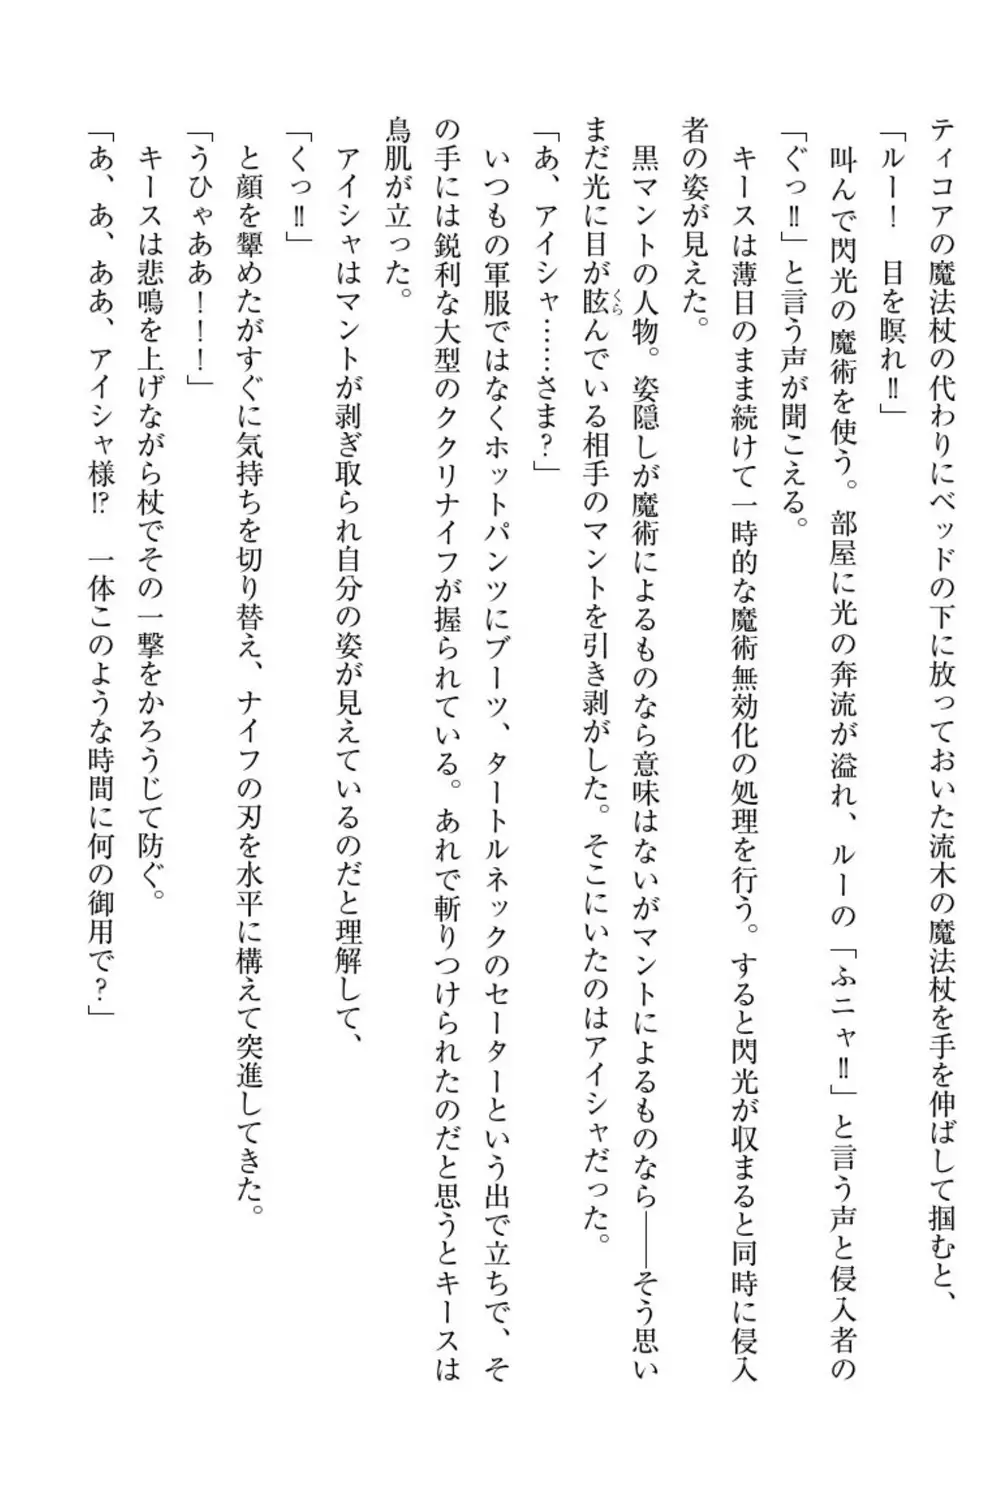 ティコアの魔法杖の代わりにベッドの下に放っておいた流木の魔法杖を手を伸ばして掴むと、
「ルー！　目を瞑れ‼」
　叫んで閃光の魔術を使う。部屋に光の奔流が溢れ、ルーの「ふニャ‼」と言う声と侵入者の
「ぐっ‼」と言う声が聞こえる。
　キースは薄目のまま続けて一時的な魔術無効化の処理を行う。すると閃光が収まると同時に侵入
者の姿が見えた。
　黒マントの人物。姿隠しが魔術によるものなら意味はないがマントによるものなら――そう思い
まだ光に目が眩んでいる相手のマントを引き剥がした。そこにいたのはアイシャだった。
「あ、アイシャ……さま？」
　いつもの軍服ではなくホットパンツにブーツ、タートルネックのセーターという出で立ちで、そ
の手には鋭利な大型のククリナイフが握られている。あれで斬りつけられたのだと思うとキースは
鳥肌が立った。
　アイシャはマントが剥ぎ取られ自分の姿が見えているのだと理解して、
「くっ‼」
　と顔を顰めたがすぐに気持ちを切り替え、ナイフの刃を水平に構えて突進してきた。
「うひゃああ！！！」
　キースは悲鳴を上げながら杖でその一撃をかろうじて防ぐ。
「あ、あ、ああ、アイシャ様⁉　一体このような時間に何の御用で？」